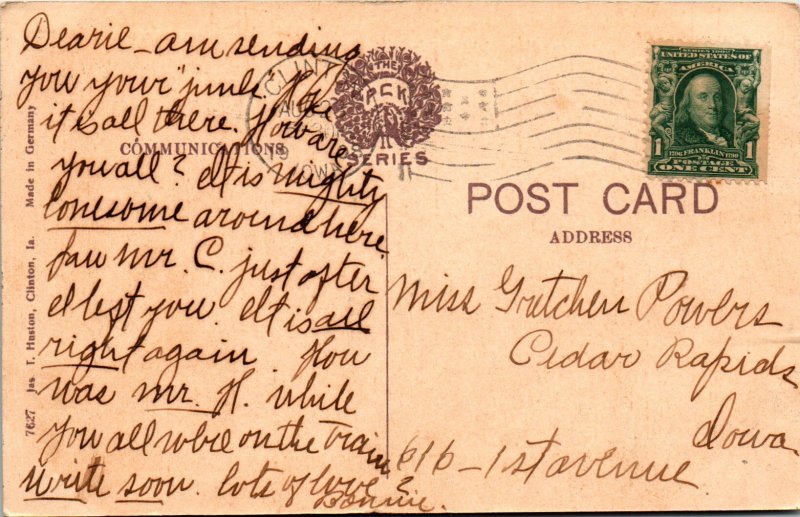 Dearie - am sending
you your "junk. Hope
it is all there. How are
you all? It is mighty
lonesome around here.
Saw Mr. C. just after
I left you. It is all
right again. How
was Mr. H. while
you all were on the train
Write soon. lots of love
Bonnie.
COMMUNICATIONS
THE
PCK
SERIES
CLINTON
AUG
IOWA
SERIES 1902
UNITED STATES OF
AMERICA
1 FRANKLIN 1
POSTAGE
ONE CENT
POST CARD
ADDRESS
Miss Gretchen Powers
Cedar Rapids
Iowa
616 - 1st avenue
7627 Jas T. Huston, Clinton, Ia. Made in Germany